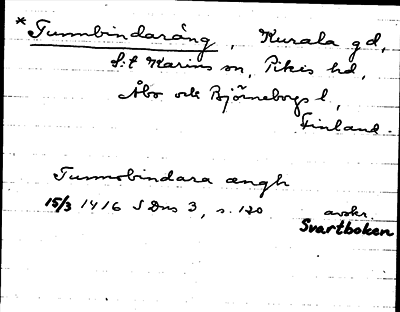 * Tunnbindaräng, Kurala gd,
S:t Karins sn, Pikis hd,
Åbo och Björneborgs l,
Finland.
Tunnobindara ængh
15/3 1416 SDns 3, s. 120 avskr.
Svartboken